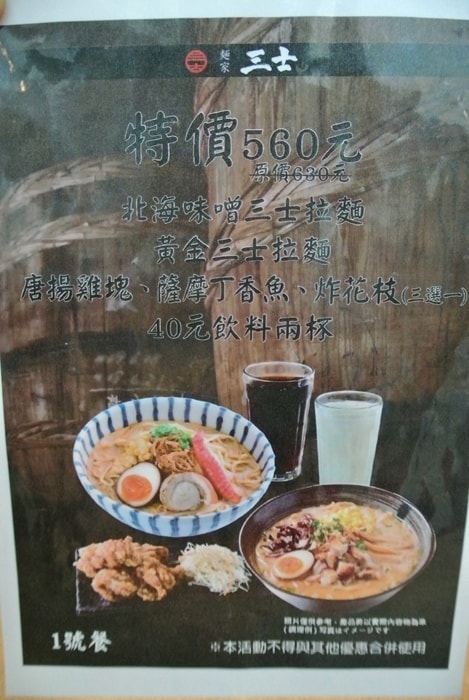 麵家 三士
特價560元
原價630元
北海味噌三士拉麵
黃金三士拉麵
唐揚雞塊、薩摩丁香魚、炸花枝(三選一)
40元飲料兩杯
照片僅供參考，產品將以實際內容物為準
(調理例)写真はイメージです
1號餐
※本活動不得與其他優惠合併使用